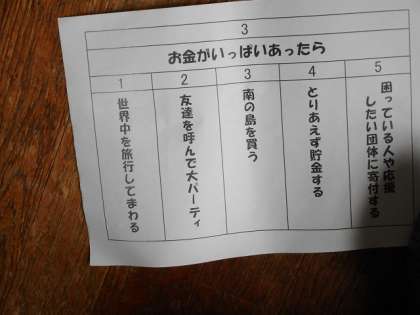 3
お金がいっぱいあったら
1
世界中を旅行してまわる
2
友達を呼んで大パーティ
3
南の島を買う
4
とりあえず貯金する
5
困っている人や応援
したい団体に寄付する